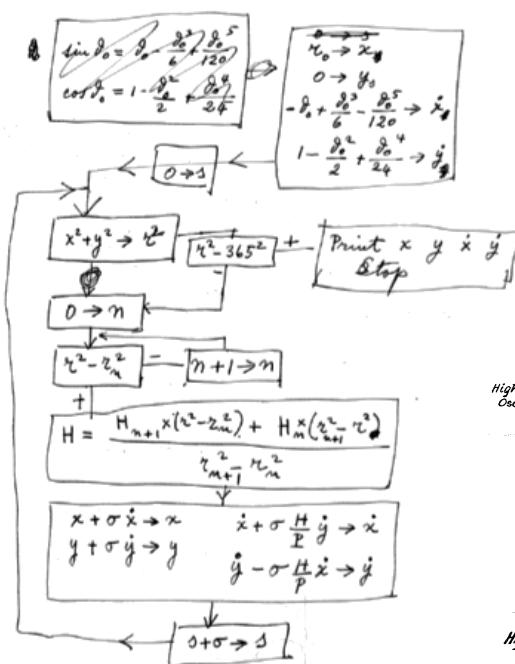 sin ϑ₀ = ϑ₀ - ϑ₀³/6 + ϑ₀⁵/120
cos ϑ₀ = 1 - ϑ₀²/2 + ϑ₀⁴/24
0 → s
r₀ → x
0 → y
-ϑ₀ + ϑ₀³/6 - ϑ₀⁵/120 → ẋ
1 - ϑ₀²/2 + ϑ₀⁴/24 → ẏ
0 → s
x² + y² → r²
r² - 365²
+
-
Print x y ẋ ẏ
Stop
0 → n
r² - rₙ²
-
n + 1 → n
+
H = (Hₙ₊₁ × (r² - rₙ²) + Hₙ × (r²ₙ₊₁ - r²)) / (r²ₙ₊₁ - rₙ²)
x + σ ẋ → x
y + σ ẏ → y
ẋ + σ H/p ẏ → ẋ
ẏ - σ H/p ẋ → ẏ
s + σ → s
High
Osc
H